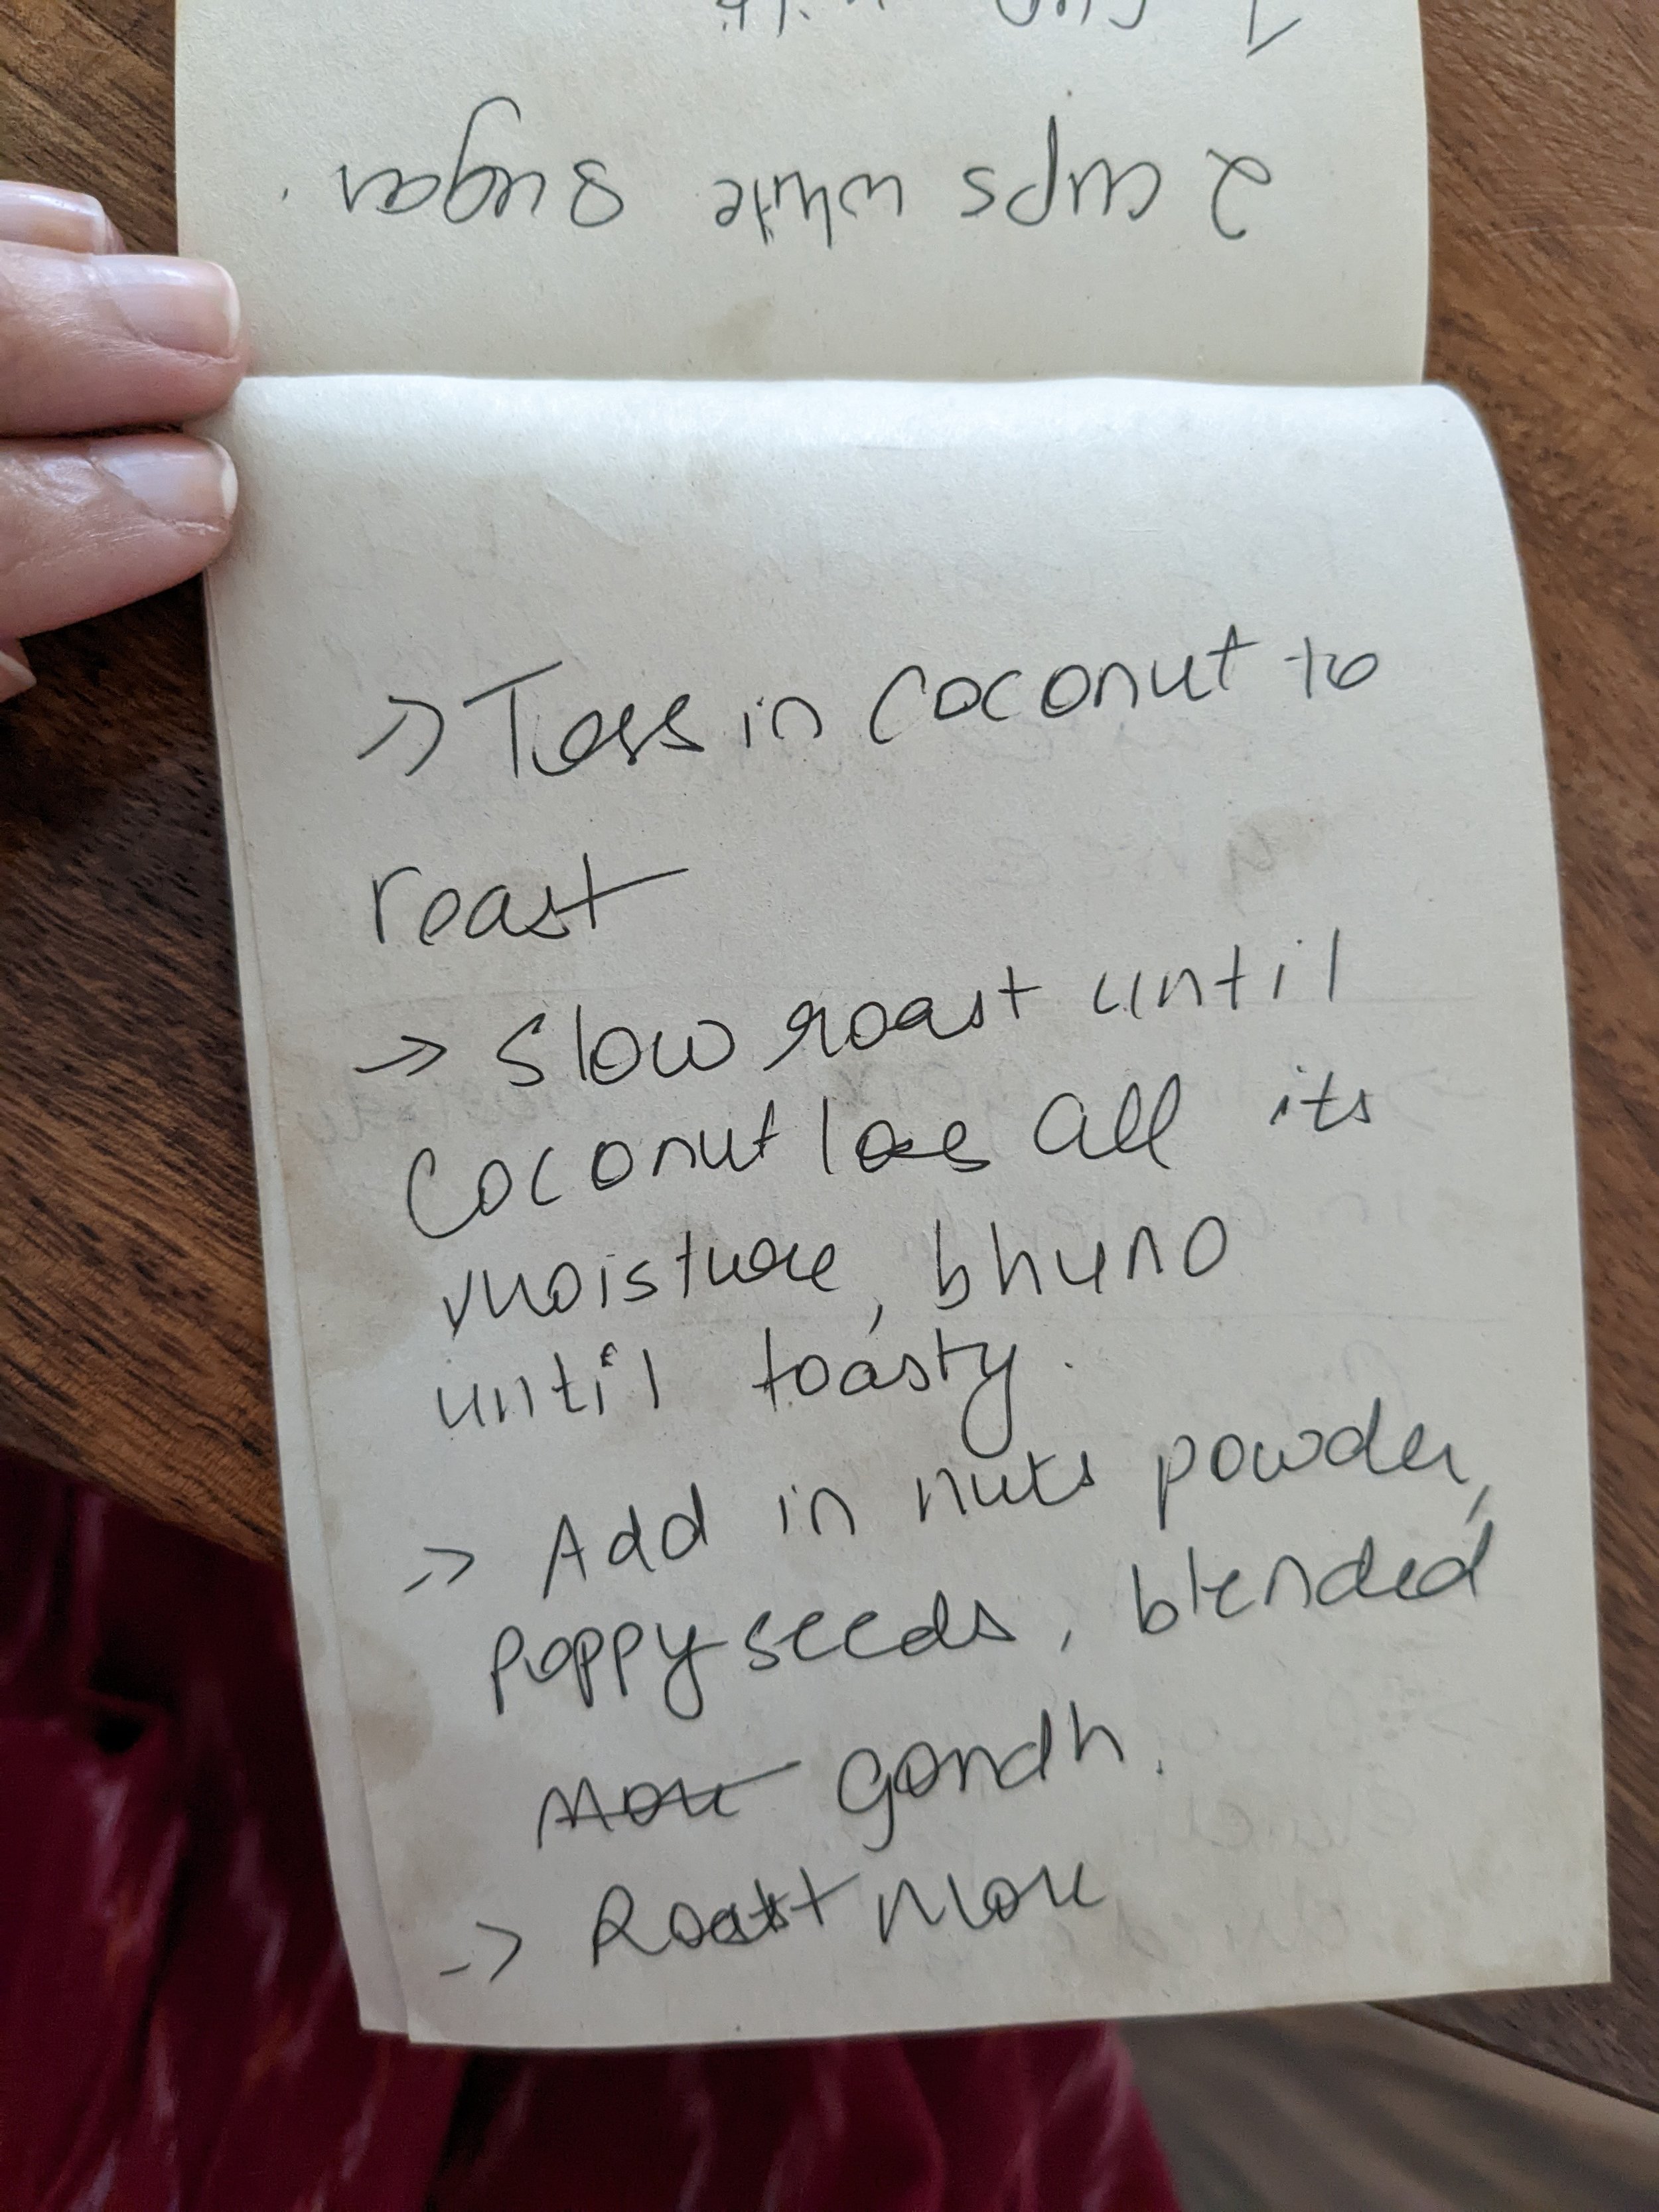 1 cup milk
2 cups white sugar.
-> Toss in coconut to
roast
-> Slow roast until
coconut loses all its
moisture, bhuno
until toasty.
-> Add in nuts powder,
poppy seeds, blended
gondh.
-> Roast more